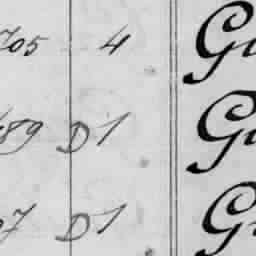 705 4 Gu
89 D 1 Gu
7 D 1 G